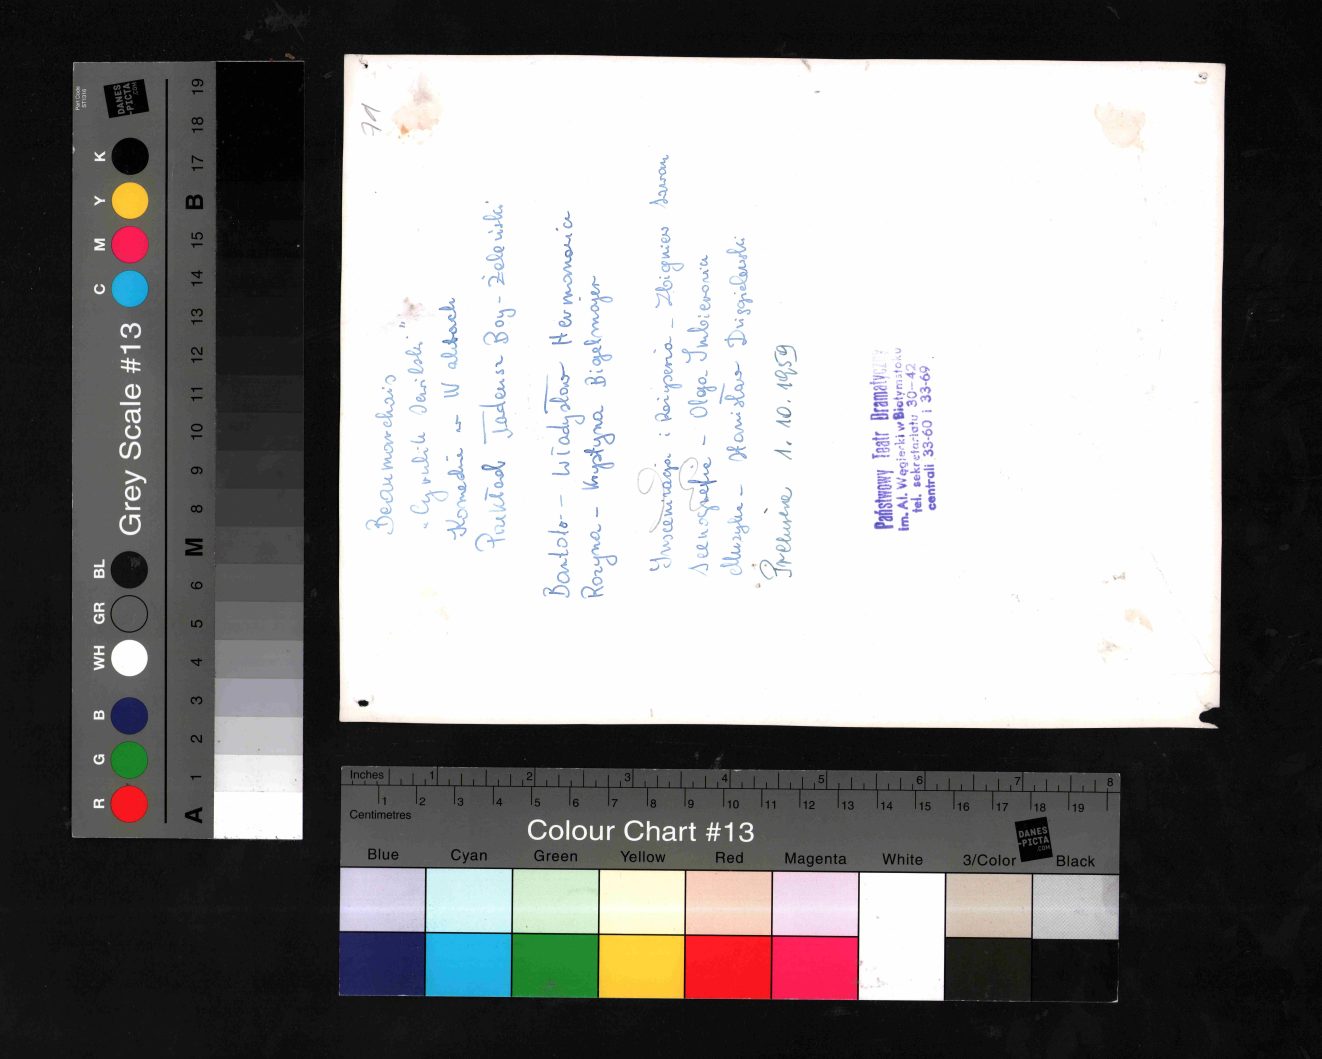 71
Beaumarchais
"Cyrulik Sewilski"
Komedia w IV aktach
Przekład Tadeusz Boy-Żeleński
Bartolo - Władysław Hermanowicz
Rozyna - Krystyna Bigelmajer
Inscenizacja i Reżyseria - Zbigniew Sawan
Scenografia - Olga
Muzyka - Stanisław
Premiera 1.10.1959
Państwowy Teatr Dramatyczny
im. Al. Węgierki w Białymstoku
tel. sekretariatu 30-42
centrali 33-60 i 33-69
Part Code
ST1316
DANES
-PICTA
.COM
Grey Scale #13
R G B WH GR BL C M Y K
A 1 2 3 4 5 6 M 8 9 10 11 12 13 14 15 B 17 18 19
Inches 1 2 3 4 5 6 7 8
1 2 3 4 5 6 7 8 9 10 11 12 13 14 15 16 17 18 19
Centimetres
Colour Chart #13
DANES
-PICTA
.COM
Blue Cyan Green Yellow Red Magenta White 3/Color Black